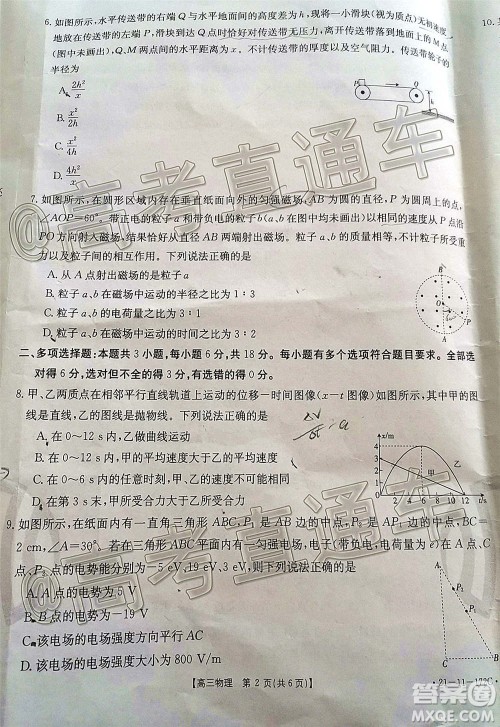 6. 如图所示，水平传送带的右端Q与水平地面间的高度差为h，现将一小滑块(视为质点)无初速度
地放在传送带的左端P，滑块到达Q点时恰好对传送带无压力，离开传送带落到地面上的M点
(图中未画出)，Q、M两点间的水平距离为x。不计传送带的厚度以及空气阻力。传送带轮子的
半径为
A. 2h²/x
B. x²/2h
C. x²/4h
D. x²/h
P
Q
h
7. 如图所示，在圆形区域内存在垂直纸面向外的匀强磁场，AB为圆的直径，P为圆周上的点，
∠AOP=60°。带正电的粒子a和带负电的粒子b(a、b在图中均未画出)以相同的速度从P点沿
PO方向射入磁场，结果恰好从直径AB两端射出磁场。粒子a、b的质量相等，不计粒子所受重
力以及粒子间的相互作用。下列说法正确的是
A. 从A点射出磁场的是粒子a
B. 粒子a、b在磁场中运动的半径之比为1∶3
C. 粒子a、b的电荷量之比为3∶1
D. 粒子a、b在磁场中运动的时间之比为3∶1
二、多项选择题：本题共3小题，每小题6分，共18分。每小题有多个选项符合题目要求。全部选
对得6分，选对但不全的得3分，有选错的得0分。
8. 甲、乙两质点在相邻平行直线轨道上运动的位移—时间图像(x－t图像)如图所示，其中甲的图
线是直线，乙的图线是抛物线。下列说法正确的是
A. 在0～12 s内，乙做曲线运动
B. 在0～12 s内，甲的平均速度与乙的平均速度大小相等
C. 在0～6 s内，甲的平均速度比乙的平均速度大
D. 在第3 s末，甲所受合力小于乙所受合力
x/m
4
3
2
1
0 2 4 6 8 10 12 t/s
甲
乙
9. 如图所示，在纸面内有一直角三角形ABC，P₁是AB的中点，P₂是AP₁的中点，BC=
2 cm，∠A=30°。若在三角形ABC所在平面内有一匀强电场，电子(带负电、电荷量为e)在
A、C、P₂点的电势能分别为－5 eV、19 eV、3 eV，则下列说法正确的是
A. A点的电势为5 V
B. B点的电势为－19 V
C. 该电场的电场强度方向平行AC
D. 该电场的电场强度大小为800 V/m
A
P₂
P₁
C
B
【高三物理 第2页(共6页)】
·21－11－122C·
@高考直通车
@高考直通车
@高考直通车
答案圈
MXQE.COM